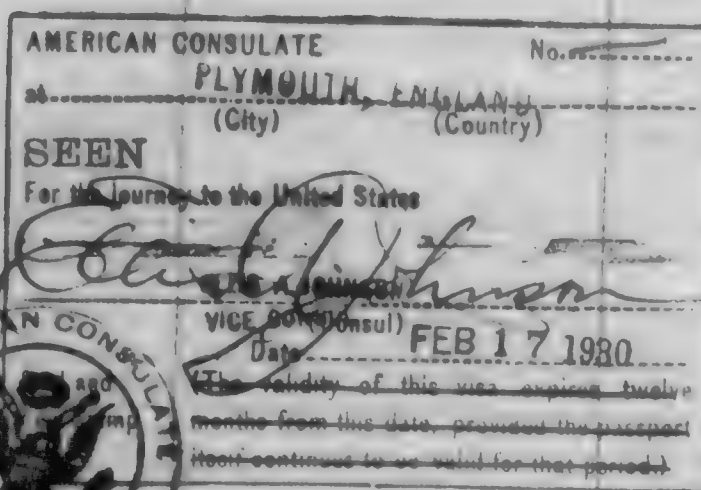 AMERICAN CONSULATE No.
at PLYMOUTH, ENGLAND
(City) (Country)
SEEN
For the journey to the United States
VICE (Consul)
Date FEB 17 1930
(The validity of this visa expires twelve
months from this date, provided the passport
itself continues to be valid for that period.)
AN CONSULATE
and